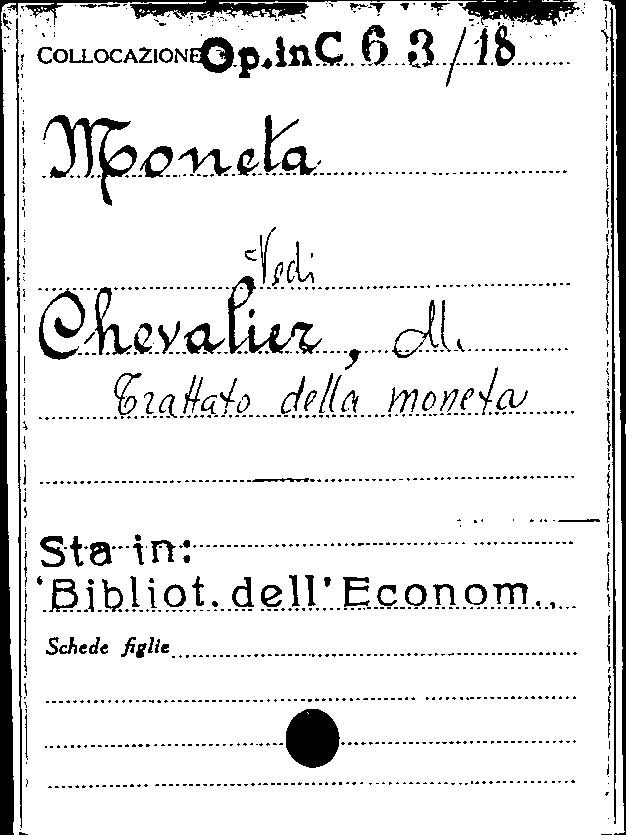 COLLOCAZIONE Op.inC 63/18
Moneta
Vedi
Chevalier, M.
Trattato della moneta
Sta in:
'Bibliot. dell' Econom..
Schede figlie